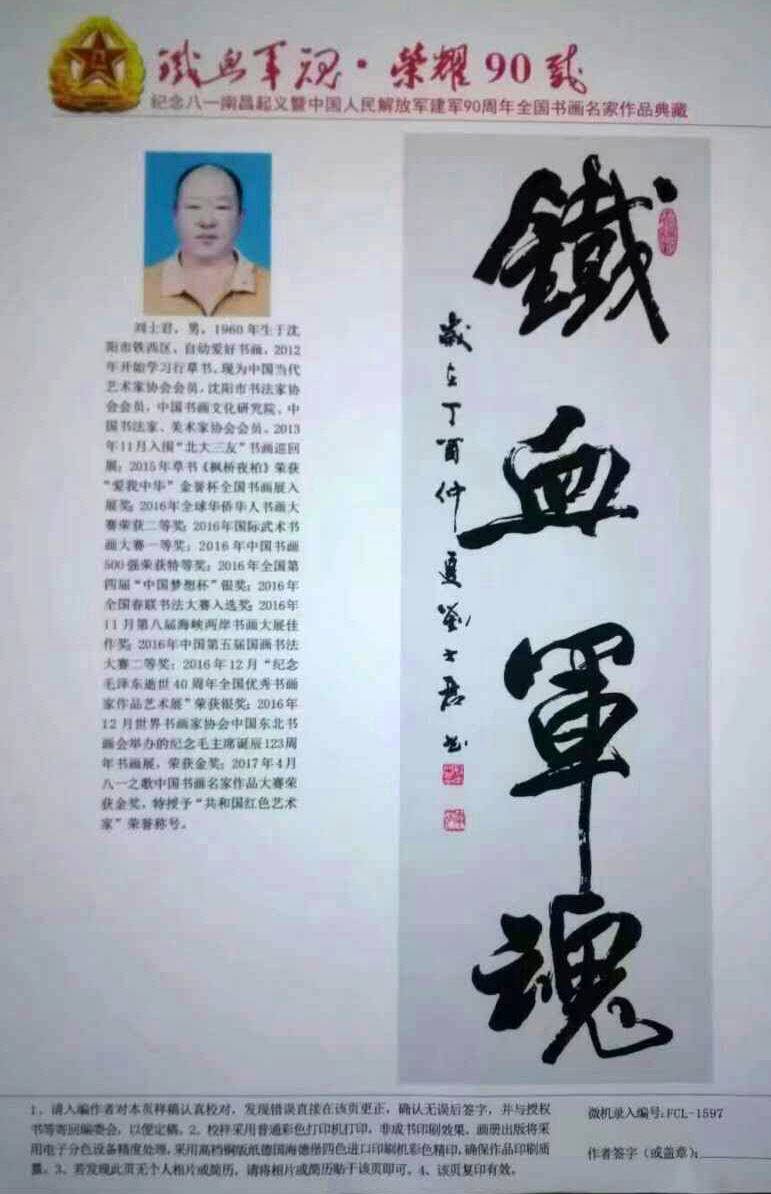 鐵血軍魂·榮耀90載
纪念八一南昌起义暨中国人民解放军建军90周年全国书画名家作品典藏
刘士君，男，1960年生于沈
阳市铁西区，自动爱好书画，2012
年开始学习行草书。现为中国当代
艺术家协会会员，沈阳市书法家协
会会员，中国书画文化研究院、中
国书法家、美术家协会会员。2013
年11月入围“北大三友”书画巡回
展；2015年草书《枫桥夜柏》荣获
“爱我中华”金誉杯全国书画展入
展奖；2016年全球华侨华人书画大
赛荣获二等奖；2016年国际武术书
画大赛一等奖；2016年中国书画
500强荣获特等奖；2016年全国第
四届“中国梦想杯”银奖；2016年
全国春联书法大赛入选奖；2016年
11月第八届海峡两岸书画大展佳
作奖；2016年中国第五届国画书法
大赛二等奖；2016年12月“纪念
毛泽东逝世40周年全国优秀书画
家作品艺术展”荣获银奖；2016年
12月世界书画家协会中国东北书
画会举办的纪念毛主席诞辰123周
年书画展，荣获金奖；2017年4月
八一之歌中国书画名家作品大赛荣
获金奖，特授予“共和国红色艺术
家”荣誉称号。
鐵血軍魂
歲在丁酉仲夏劉士君书
1、请入编作者对本页样稿认真校对，发现错误直接在该页更正，确认无误后签字，并与授权
书等寄回编委会，以便定稿。2、校样采用普通彩色打印机打印，非成书印刷效果。画册出版将采
用电子分色设备精度处理，采用高档铜版纸德国海德堡四色进口印刷机彩色精印，确保作品印刷质
量。3、若发现此页无个人相片或简历，请将相片或简历贴于该页即可。4、该页复印有效。
微机录入编号：FCL-1597
作者签字（或盖章）：